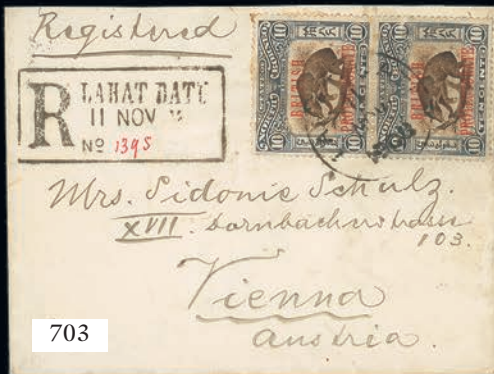 Registered
R LAHAT DATU
11 NOV
No 1395
10 10 10 10
BRITISH PROTECTORATE
BRITISH PROTECTORATE
TEN CENTS
10 10 10 10
Mrs. Sidonie Schulz.
XVII. Dornbacherstrasse
103.
Vienna
Austria.
703